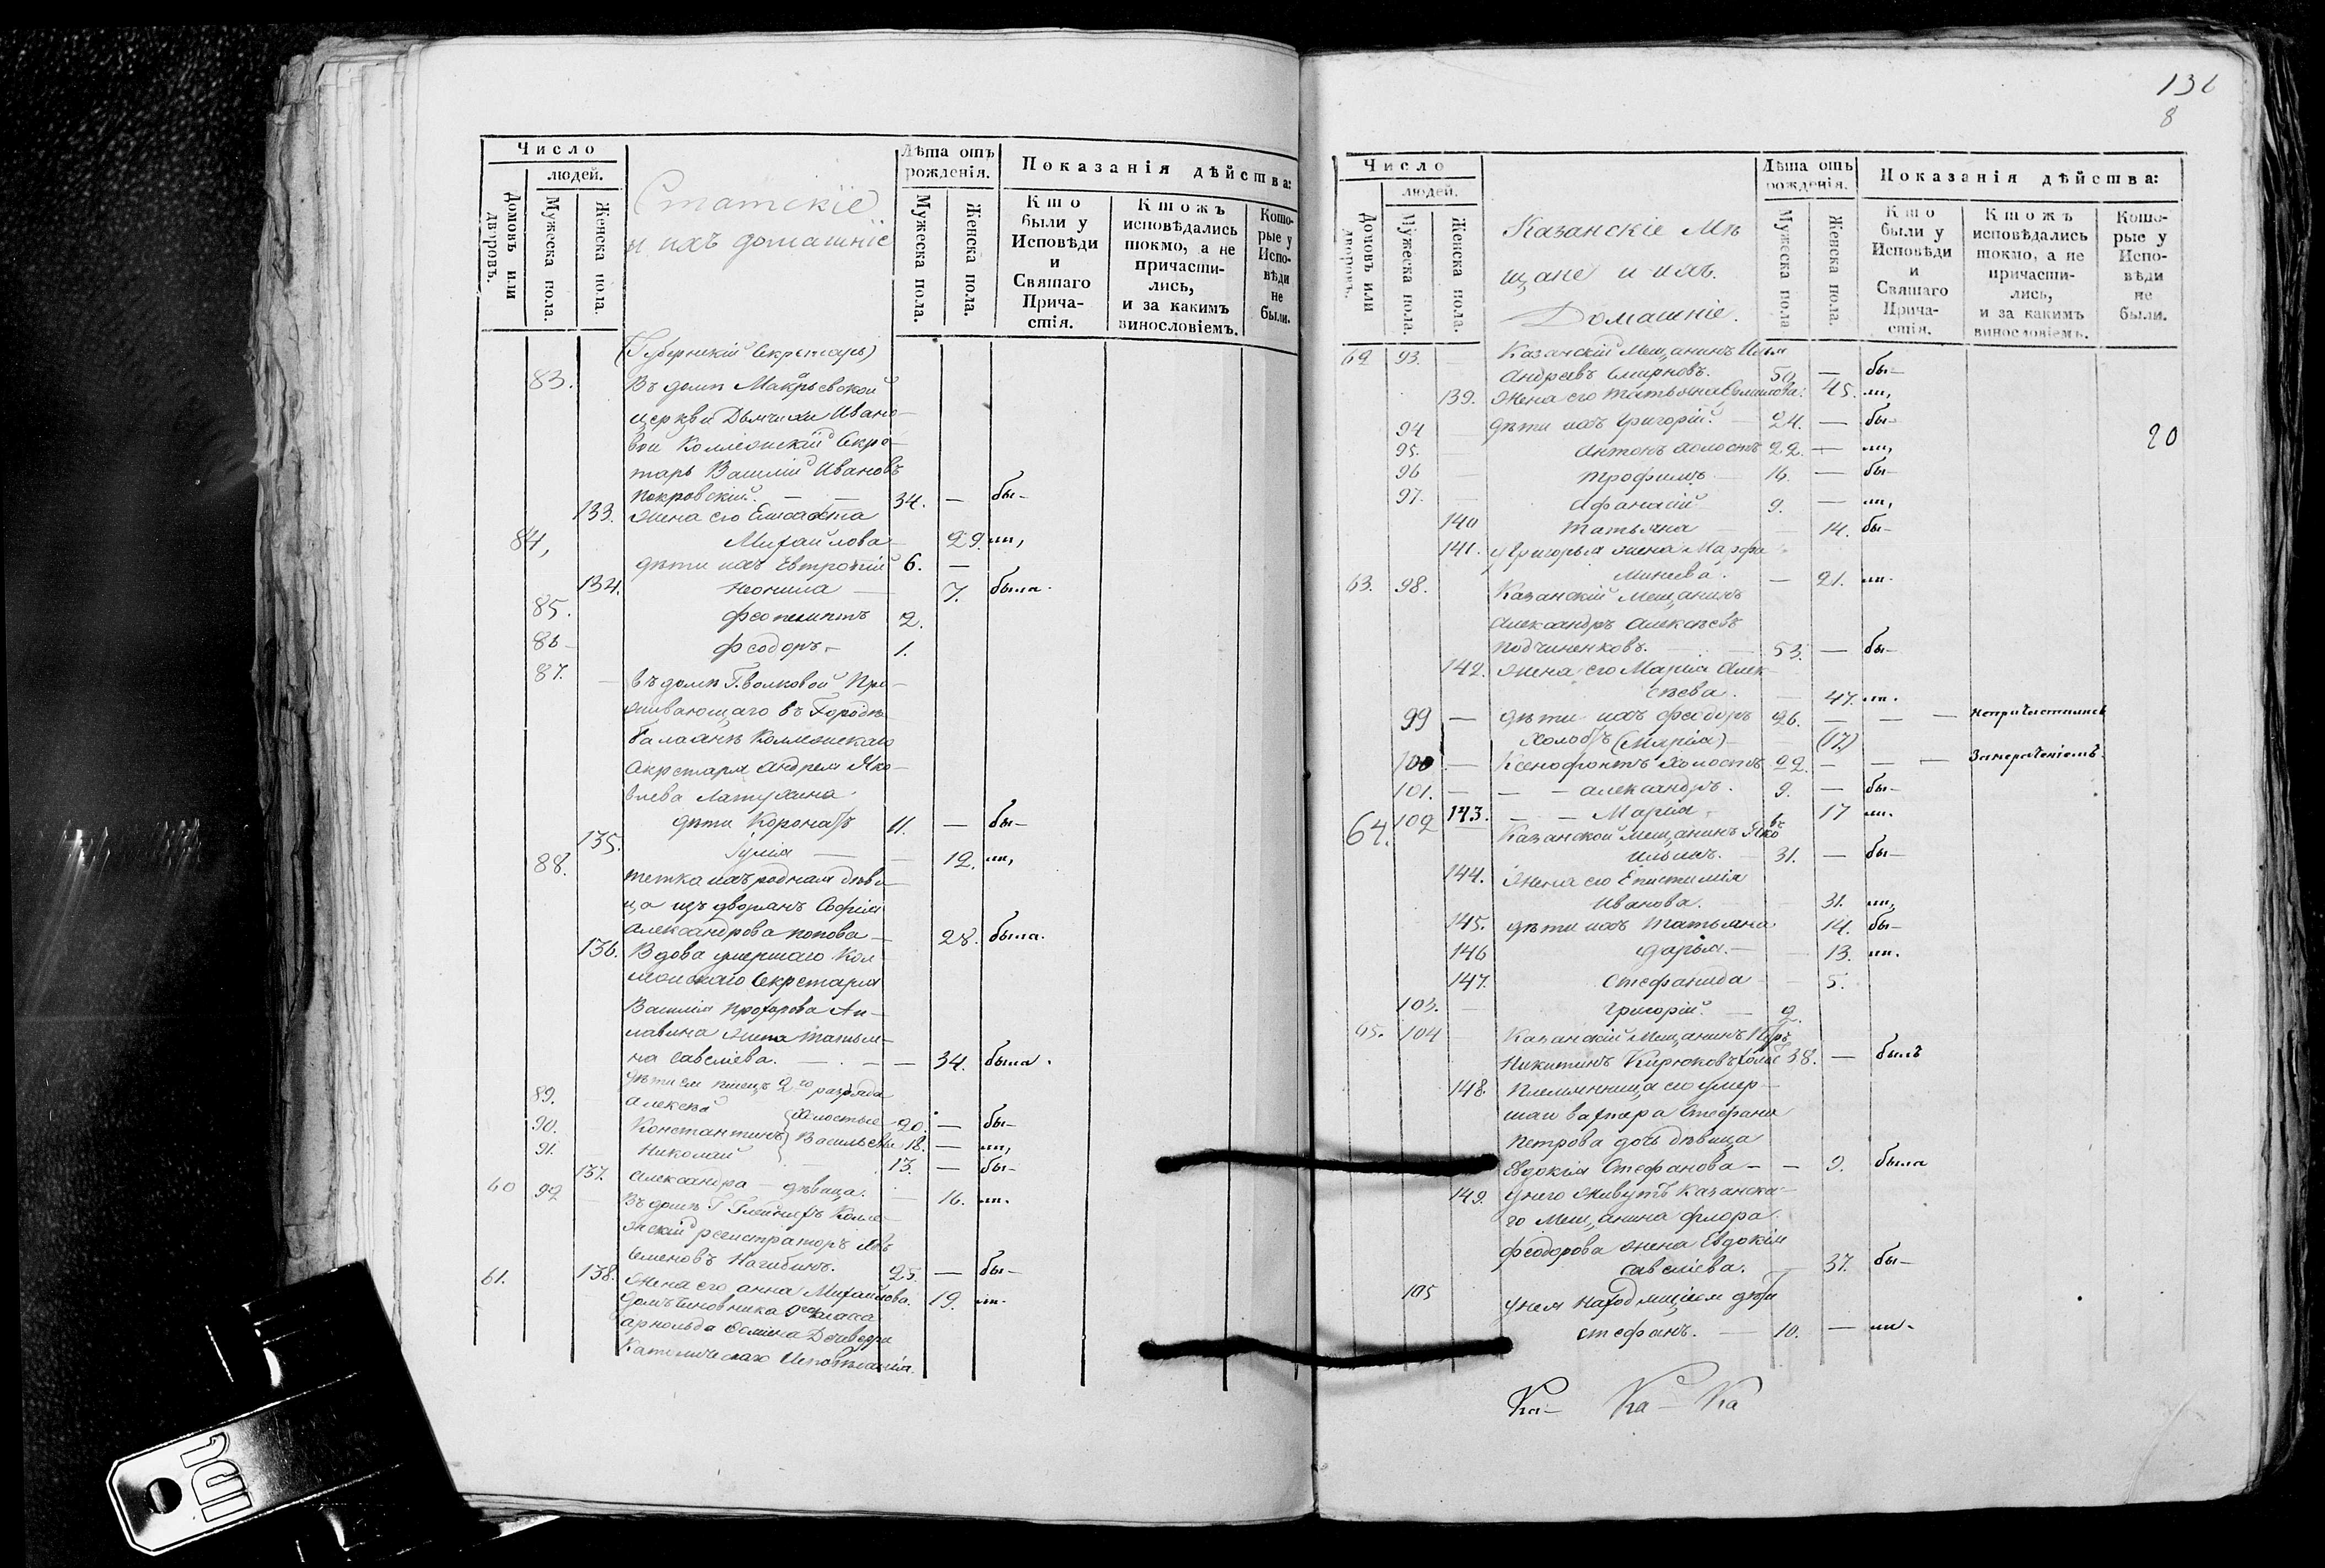 Число
людей.
Домовъ или дворовъ.
Мужеска пола.
Женска пола.
Статскіе
и ихъ домашніе
Лѣта отъ рожденія.
Мужеска пола.
Женска пола.
Показанія дѣйства:
Кто были у Исповѣди и Святаго Причастія.
Ктожъ исповѣдались токмо, а не причастились, и за какимъ винословіемъ.
Которые у Исповѣди не были.
(Губернскій Секретарь)
83. Въ домѣ Макарьевской
церкви Дьячихи Ивано-
вой Коллежскій Секре-
тарь Василій Ивановъ
Покровскій. — — 34. — бы-
133. Жена его Елисавета
84, Михайлова 29. ли,
дѣти ихъ Евтропій 6. —
134. Неонила — 7. была.
85. Феопемптъ 2.
86 Феодоръ 1.
87. въ домѣ Г. Волковой Про-
живающаго въ Городѣ
Балаанѣ Коллежскаго
Секретаря Андрея Яко-
влева Латухина
дѣти Коронатъ 11. — бы-
135. Іулія — — 12. ли,
88. тетка ихъ родная дѣви-
ца изъ дворянъ Софія
Александрова Попова 28. была.
136. Вдова умершаго Кол-
лежскаго Секретаря
Василія Прохорова Ан-
лавина жена Татья-
на Савеліева. — — 34. была.
дѣти ея писецъ 2го разряда
89. Алексѣй {Холостые 20. — бы-
90. Константинъ} Васильевы 18. — ли,
91. Николай 13. — бы-
137. Александра — дѣвица. — 16. ли.
60 92 Въ домѣ Г. Колле-
жскій регистраторъ
Семеновъ Нагибинъ. 25. — бы-
61. 138. Жена его Анна Михайлова. 19. ли.
Домъ Чиновника 9го класса
Арнольда
Католическаго Исповѣданія.
131
8
Число
людей.
Домовъ или дворовъ.
Мужеска пола.
Женска пола.
Казанскіе Мѣ
щане и ихъ
Домашніе.
Лѣта отъ рожденія.
Мужеска пола
Женска пола.
Показанія дѣйства:
Кто были у Исповѣди и Святаго Причастія.
Ктожъ исповѣдались токмо, а не причастились, и за какимъ винословіемъ.
Которые у Исповѣди не были.
62 93. Казанскій Мещанинъ
Андреевъ Смирновъ. 50. — бы-
139. Жена его Татьяна 45. ли,
94 дѣти ихъ Григорій. 24. — бы-
20
95. Антонъ Холостъ 22. — ли,
96 Трофимъ 16. — бы-
97. Афанасій 9. — ли,
140 Татьяна 14. бы-
141. Григорья жена Марфа
Минеева. — 21. ли.
63. 98. Казанскій Мещанинъ
Александръ Алексѣевъ
Подчиненковъ. 53. — бы-
142. Жена его Марія Алек-
сѣева. — 47. ли.
99 — дѣти ихъ Феодоръ 26. — — — непричастился
Холостъ (Марія) (17.)
100 — Ксенофонтъ Холостъ 22. — — —
101. — — — Александръ. 9. — бы-
143. — — Марія 17 ли.
64. 102 Казанской Мещанинъ Яко
въ
Ильинъ. 31. — бы-
144. Жена его Епистимія
Иванова. 31. ли,
145. дѣти ихъ Татьяна 14. бы-
146 Дарья. — 13. ли.
147. Стефанида — 5.
103. Григорій. — 2.
65. 104 Казанскій Мещанинъ
Никитинъ Кирюковъ 38. — былъ
148. Племянница его умер-
шаго вахтера Стефана
Петрова дочь дѣвица
Евдокія Стефанова — — 9. была
149. У него живутъ Казанска-
го Мещанина Флора
Феодорова жена Евдокія
Савеліева. — 37. бы-
105 у нея находящіися дѣти
Стефанъ. — 10. — ли.
Ка- Ка- Ка